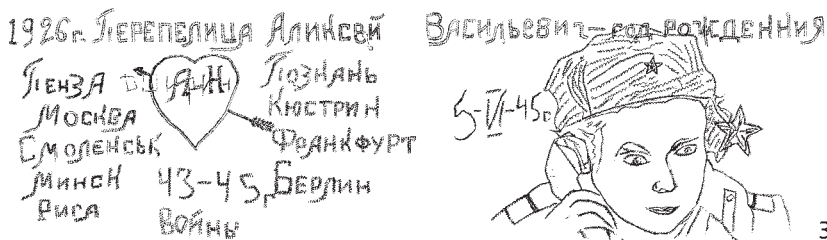 1926г. ПЕРЕПЕЛИЦА АЛИКСЕЙ ВАСИЛЬЕВИЧ – год РОЖДЕННИЯ
ПЕНЗА
МОСКВА
СМОЛЕНСЬК
МИНСК
РИСА
А Н
43-45г
ВОЙНЫ
ПОЗНАНЬ
КЮСТРИН
ФРАНКФУРТ
БЕРЛИН
5-VI-45г
3